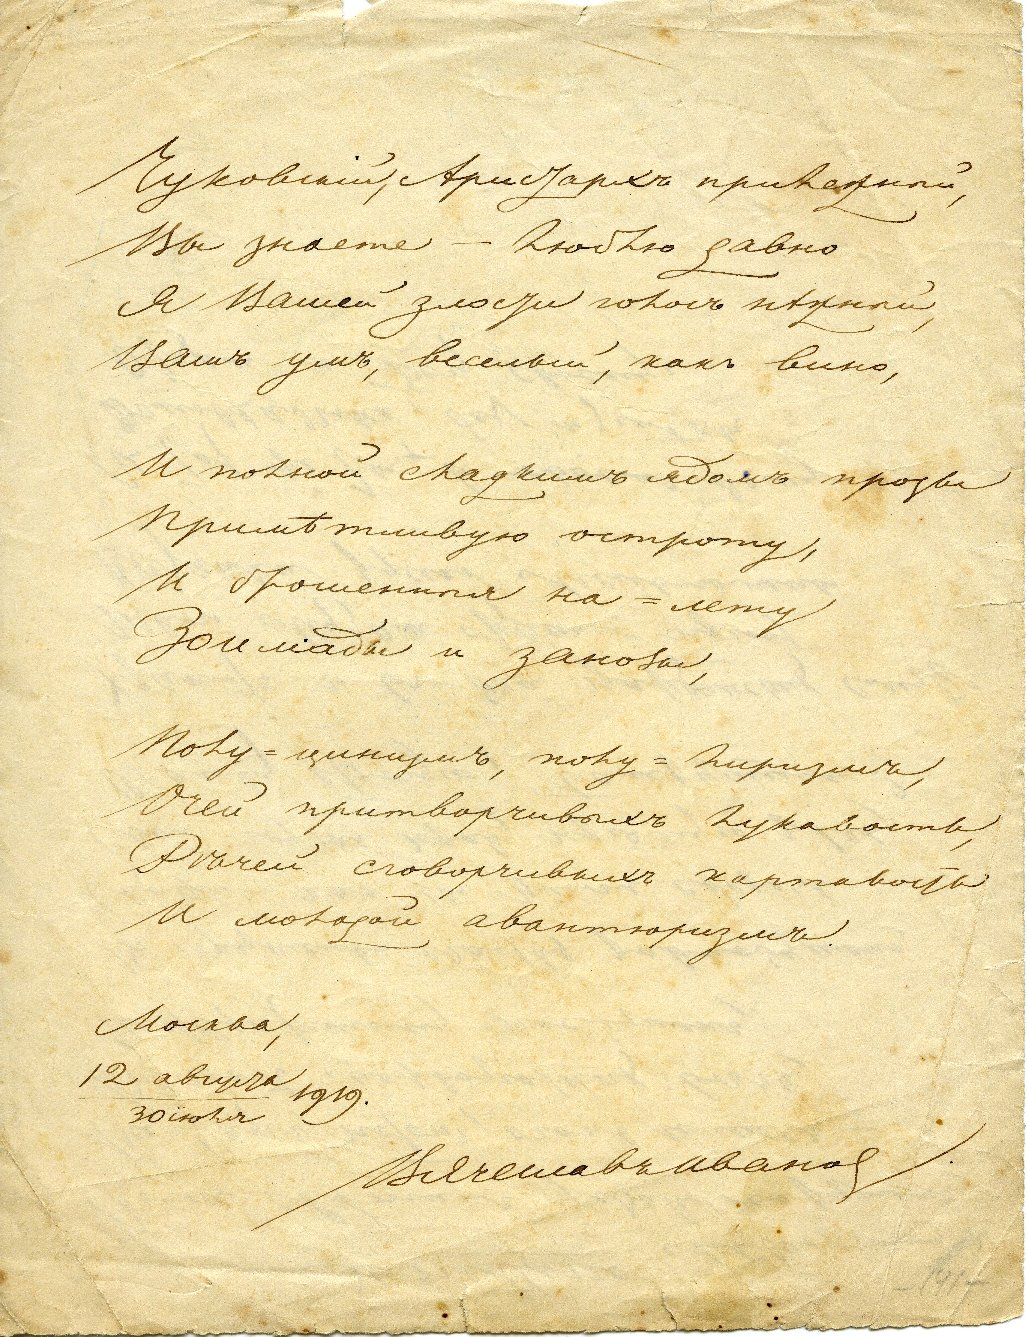 Чуковскій, Аристархъ прилежный,
Вы знаете – люблю давно
Я Вашей злости голосъ нѣжный,
Вашъ умъ, веселый, какъ вино,
И полной сладкимъ ядомъ прозы
Примѣтливую остроту,
И брошенныя на=лету
Зоиліады и занозы,
Полу=цинизмъ, полу=лиризмъ,
Очей притворчивыхъ лукавость,
Рѣчей сговорчивыхъ картавость
И молодой авантюризмъ.
Москва,
12 августа
30 іюля 1919.
Вячеславъ Иванов